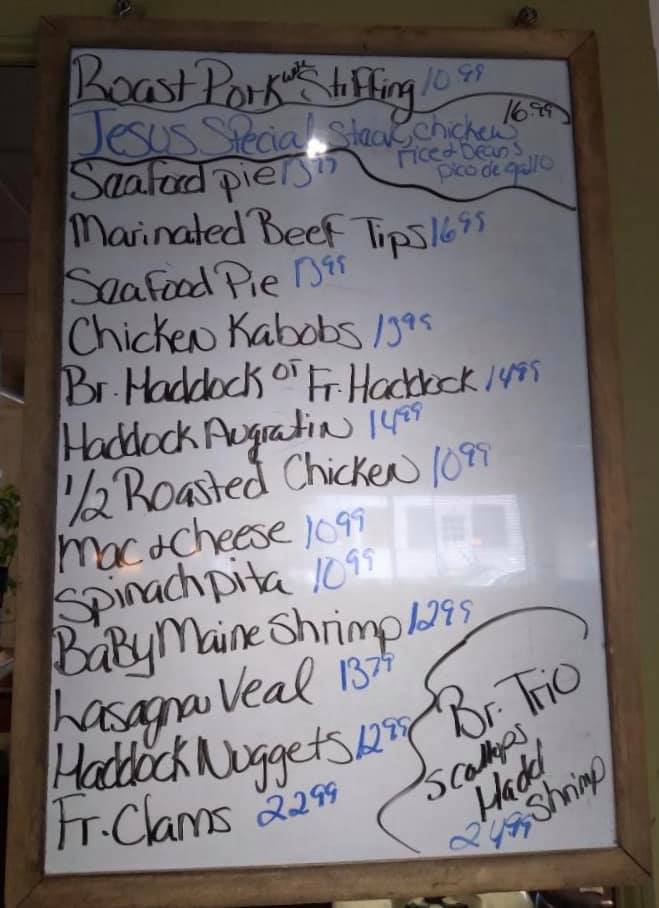 Roast Pork with Stuffing 10.99
Jesus Special Steak, Chicken 16.99
rice & beans
pico de gallo
Seafood pie 13.99
Marinated Beef Tips 16.99
Seafood Pie 13.99
Chicken Kabobs 13.99
Br. Haddock or Fr. Haddock 14.99
Haddock Augratin 14.99
1/2 Roasted Chicken 10.99
Mac & Cheese 10.99
Spinach pita 10.99
Baby Maine Shrimp 12.99
Lasagna Veal 13.79
Haddock Nuggets 12.99
Fr. Clams 22.99
Br. Trio
Scallops
Hadd
Shrimp
24.99